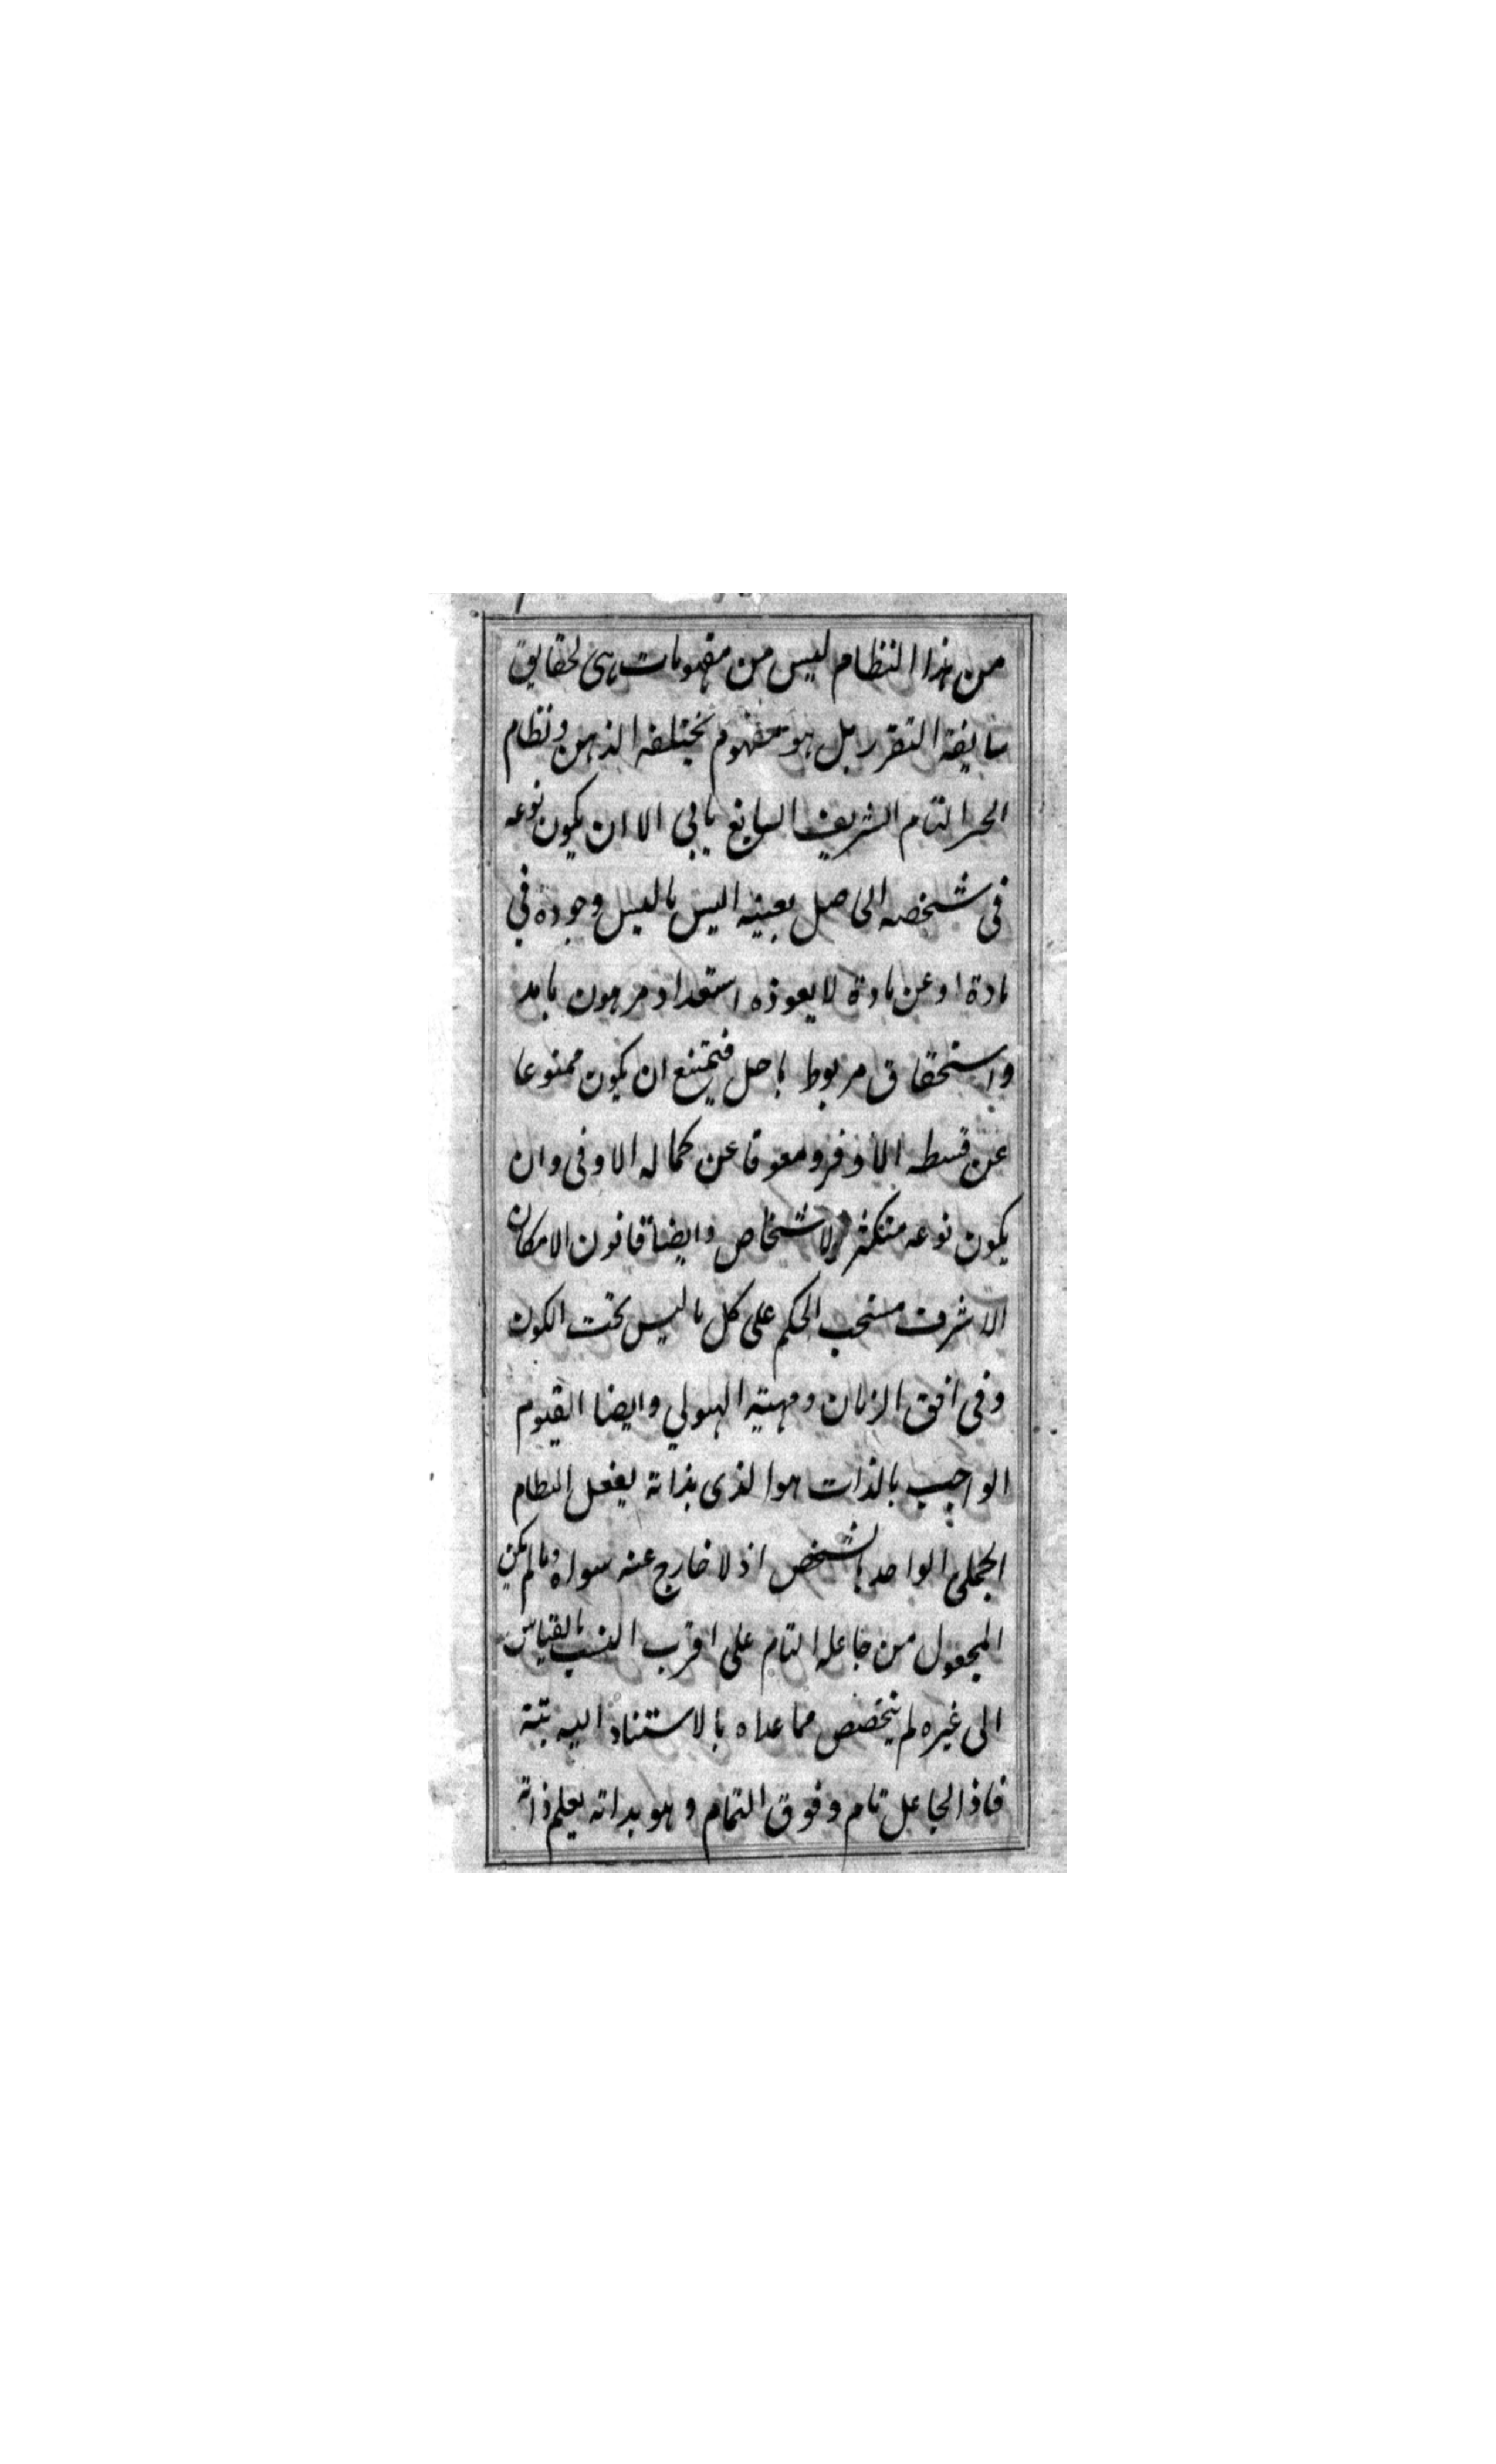 من هذا النظام ليس من مفهومات هى لحقايق
سايغة التقرر بل هو مفهوم يختلقه الذهن ونظام
الخير التام الشريف السابغ يابى الا ان يكون نوعه
فى شخصه الحاصل بعينه اليس ما ليس وجوده فى
مادة او عن مادة لا يعوذه استعداد مرهون بامد
واستحقاق مربوط باجل فيمتنع ان يكون ممنوعا
عن قسطه الاوفر ومعوقا عن كماله الاوفى وان
يكون نوعه متكثر الاشخاص وايضا قانون الامكان
الاشرف مستحب الحكم على كل ما ليس تحت الكون
وفى افق الزمان ومهية الهيولى وايضا القيوم
الواجب بالذات هو الذى بذاته يفعل النظام
الجملى الواحد بالشخص اذ لا خارج عنه سواه وما لم يكن
المجعول من جاعله التام على اقرب النسب بالقياس
الى غيره لم يتخصص مما عداه بالاستناد اليه بتة
فاذ الجاعل تام وفوق التمام وهو بذاته يعلم ذاته